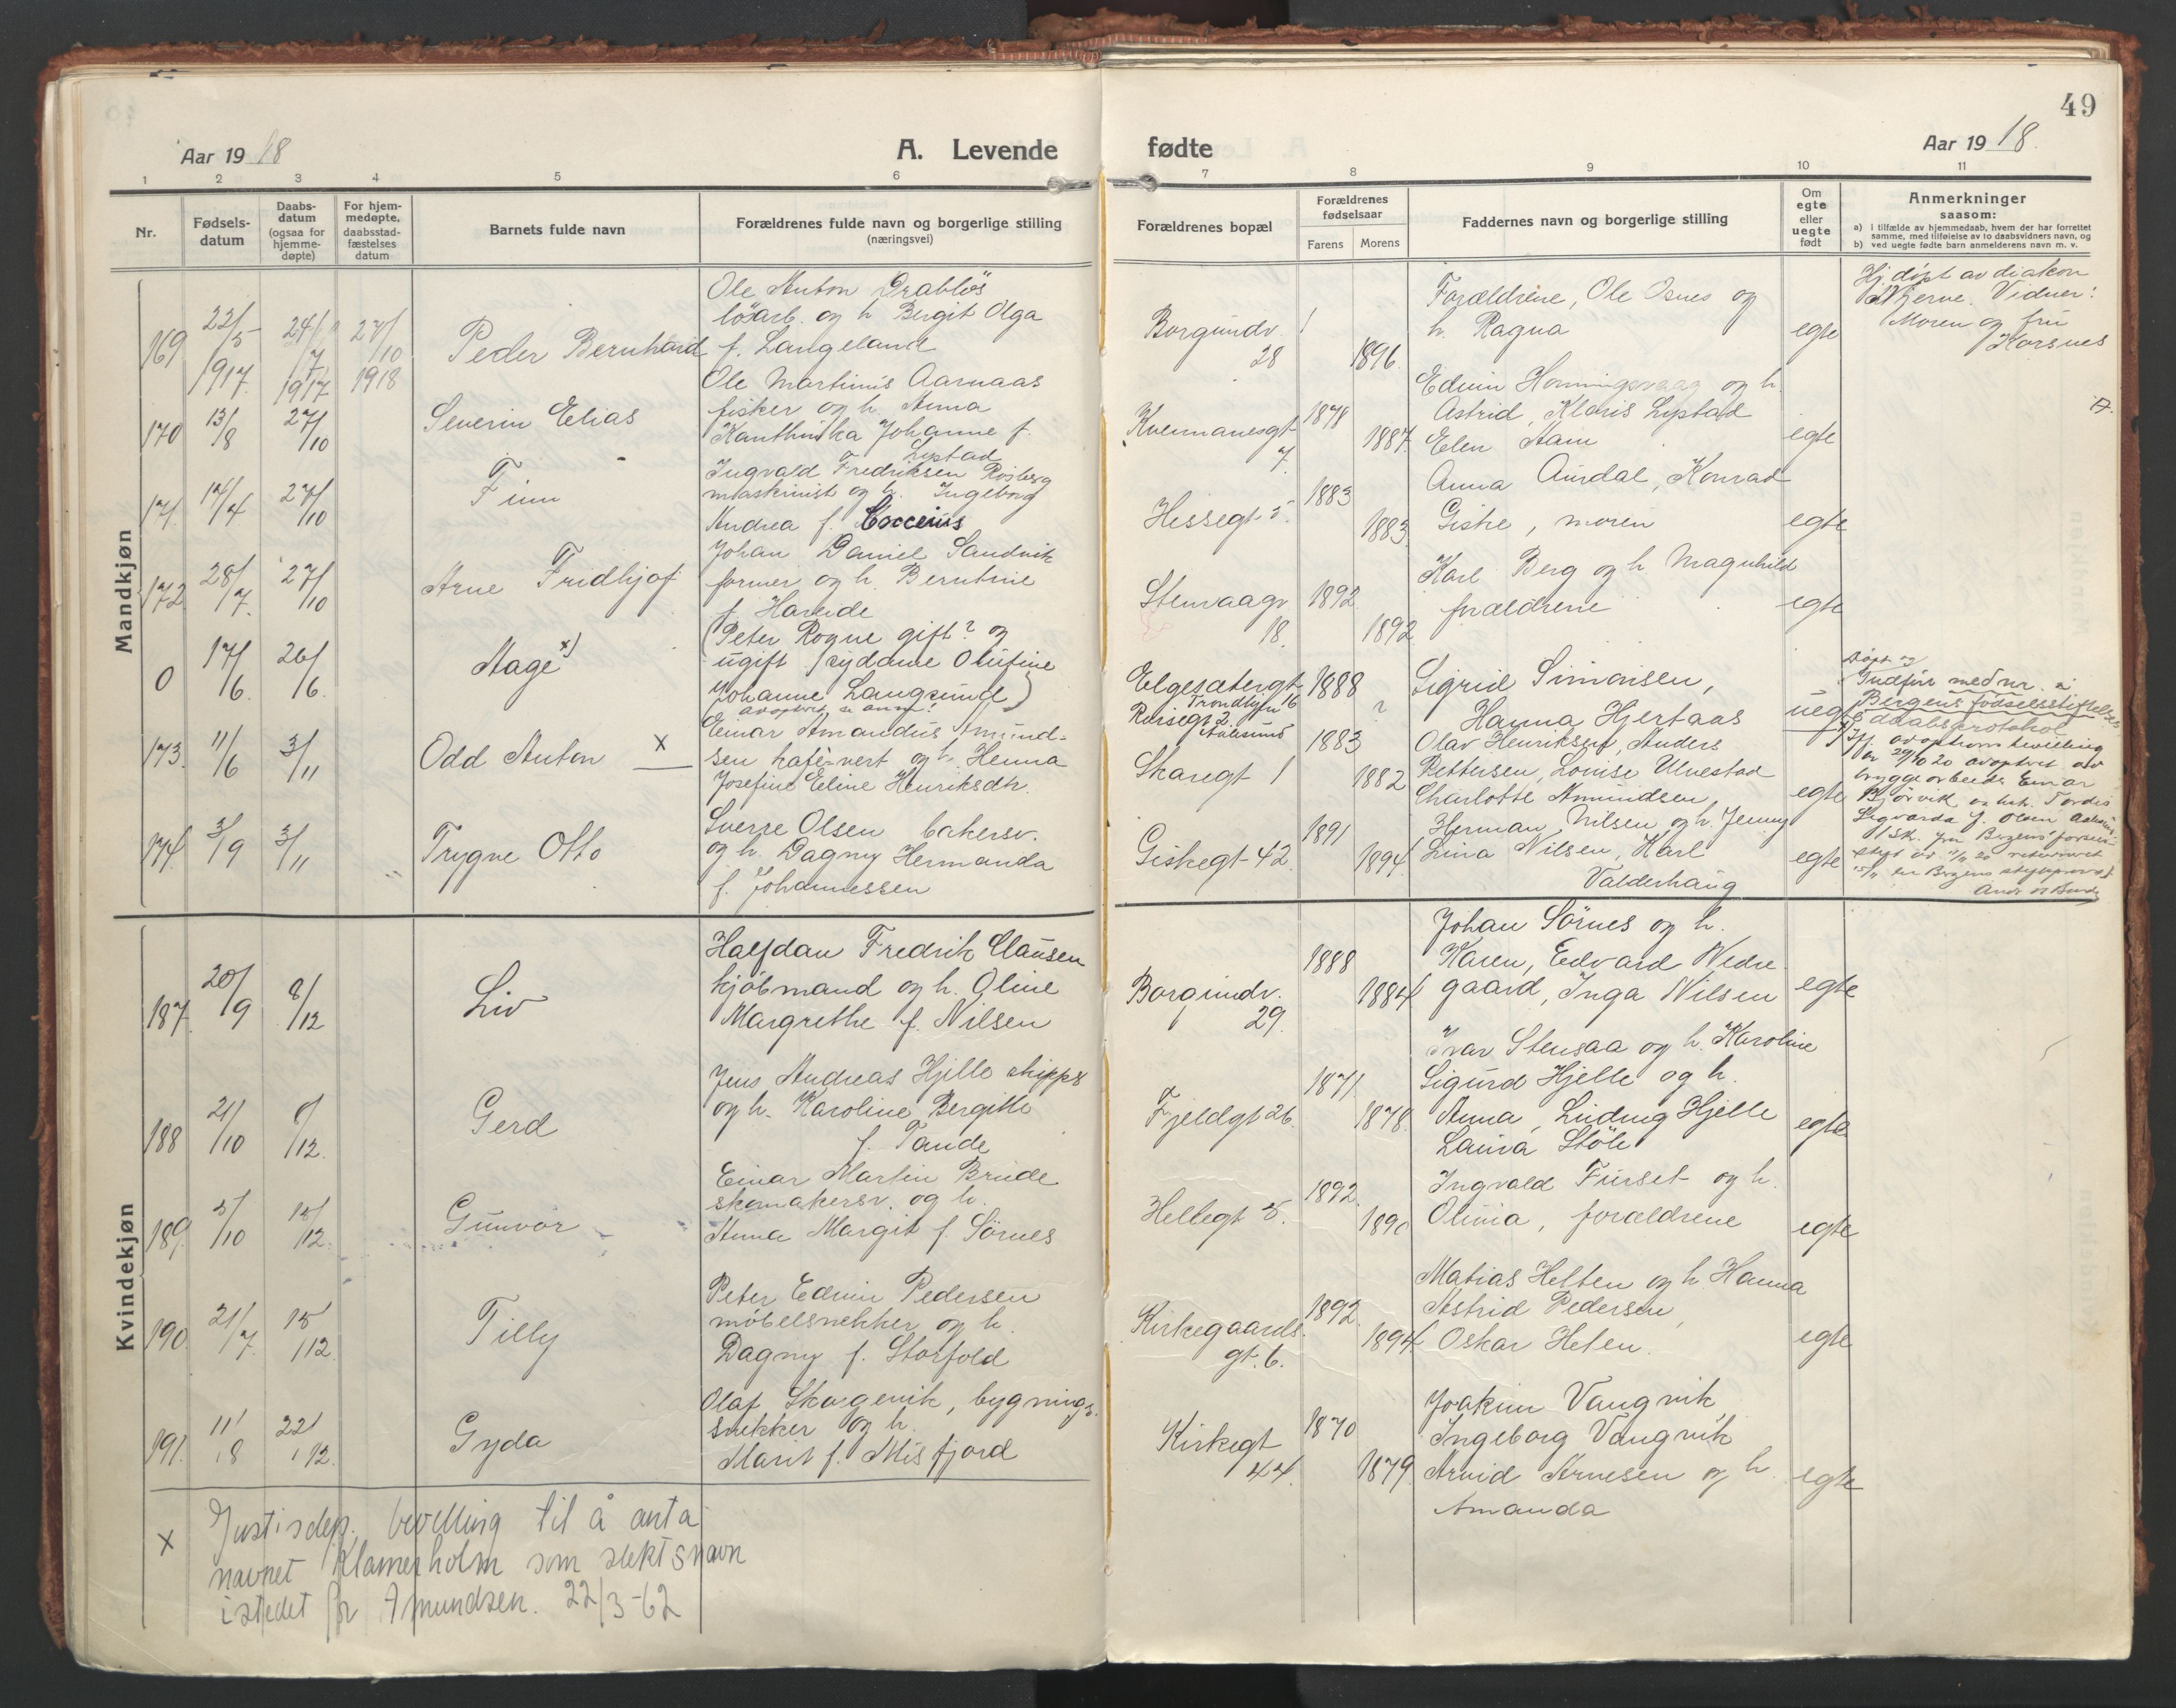 49
Aar 1918
A. Levende
fødte
Aar 1918.
1 2 3 4 5 6 7 8 9 10 11
Nr.
Fødsels-
datum
Daabs-
datum
(ogsaa for
hjemme-
døpte)
For hjem-
medøpte,
daabsstad-
fæstelses
datum
Barnets fulde navn
Forældrenes fulde navn og borgerlige stilling
(næringsvei)
Forældrenes bopæl
Forældrenes
fødselsaar
Farens Morens
Faddernes navn og borgerlige stilling
Om
egte
eller
uegte
født
Anmerkninger
saasom:
a) i tilfælde av hjemmedaab, hvem der har forrettet
samme, med tilføielse av to daabsvidners navn, og
b) ved uegte fødte barn anmelderens navn m. v.
Mandkjøn
169
22/5
1917.
24/7
1917
27/10
1918
Peder Bernhard
Ole Anton Drabløs
løsarb. og h. Bergit Olga
f. Langeland
Borgundv.
28
1896.
Forældrene, Ole Osnes og
h. Ragna
egte
Hj. døpt av diakon
Vidner:
Moren og fru
Korsnes
170
13/8
27/10
Severin Elias
Ole Martinus Aarnaas
fisker og h. Anna
Kanthinka Johanne f.
Lystad
Kvennanesgt.
7.
1878
1887.
Edvin Honningsvaag og h.
Astrid, Klaris Lystad
Elen Stam
egte
171.
14/4
27/10
Finn
Ingvald Fredriksen Rosberg
maskinist og h. Ingeborg
Andrea f. Coccenius
Hessegt. 5.
1883
1883.
Anna Aurdal, Konrad
Giske, moren
egte
172
28/7.
27/10
Arne Fridhjof
Johan Daniel Sandvik
former og h. Berntine
f. Hareide
Stenvaagv.
18.
1892.
1892
Karl Berg og h. Magnhild
forældrene
egte
0
17/6.
26/6.
Aage x)
(Peter Rogne gift? og
ugift sydame Olufine
Johanne Langsund)
adoptert, se anm!
Elgesætergt.
Trondhjem 16
Aalesund
1888
?
Sigrid Simonsen,
Hanna Hjertaas
uegte
døpt og
Indført med nr. i
Bergens fødselsstiftelses
daabsprotokol
adoptionsbevilling
av 29/10 20 adoptert av
bryggearbeider Einar
Bjørvik og hst. Tordis
Sigvarda f. Olsen
173.
11/6
3/11
Odd Anton x
Einar Amandus Amund-
sen kafévert og h. Henna
Josefine Eline Henriksdtr.
Skaregt 1
1883
1882
Olav Henriksen, Anders
Pettersen, Lovise Ulvestad
Charlotte Amundsen
egte
174
3/9
3/11
Trygve Otto
Sverre Olsen bakersv.
og h. Dagny Hermanda
f. Johannessen
Giskegt 42
1891
1894.
Herman Nilsen og h. Jenny
Lina Nilsen, Karl
Valderhaug
egte
Kvindekjøn
187.
20/9
8/12
Liv
Halfdan Fredrik Clausen
kjøbmand og h. Oline
Margrethe f. Nilsen
Borgundv.
29.
1888
1884
Johan Sørnes og h.
Karen, Edvard Nedre-
gaard, Inga Nilsen
egte
188
21/10
8/12.
Gerd
Jens Andreas Hjelle skipps
og h. Karoline Bergitte
f. Tande
Fjeldgt 26.
1871.
1878.
Ivar Stensaa og h. Karoline
Sigurd Hjelle og h.
Anna, Ludvig Hjelle
Laura Støle
egte
189.
5/10
15/12.
Gunvor
Einar Martin Brude
skomakersv. og h.
Anna Margit f. Sørnes
Hellegt 5.
1892.
Ingvald Furset og h.
Olivia, forældrene
egte
190.
21/7.
15/12.
Tilly
Peter Edvin Pedersen
møbelsnekker og h.
Dagny f. Storfold
Kirkegaards-
gt. 6.
1892.
1894
Matias Helten og h. Hanna
Astrid Pedersen,
Oskar Heten.
egte
191.
11/8
22/12.
Gyda
Olaf Skogevik, bygnings-
snikker og h.
Marit f. Misfjord
Kirkegt
44.
1870
1879
Joakim Vangvik,
Ingeborg Vangvik
Arvid Arnesen og h.
Amanda
egte
x Justisdep. bevilling til å anta
navnet Klamerholm som slektsnavn
istedet for Amundsen. 22/3-62